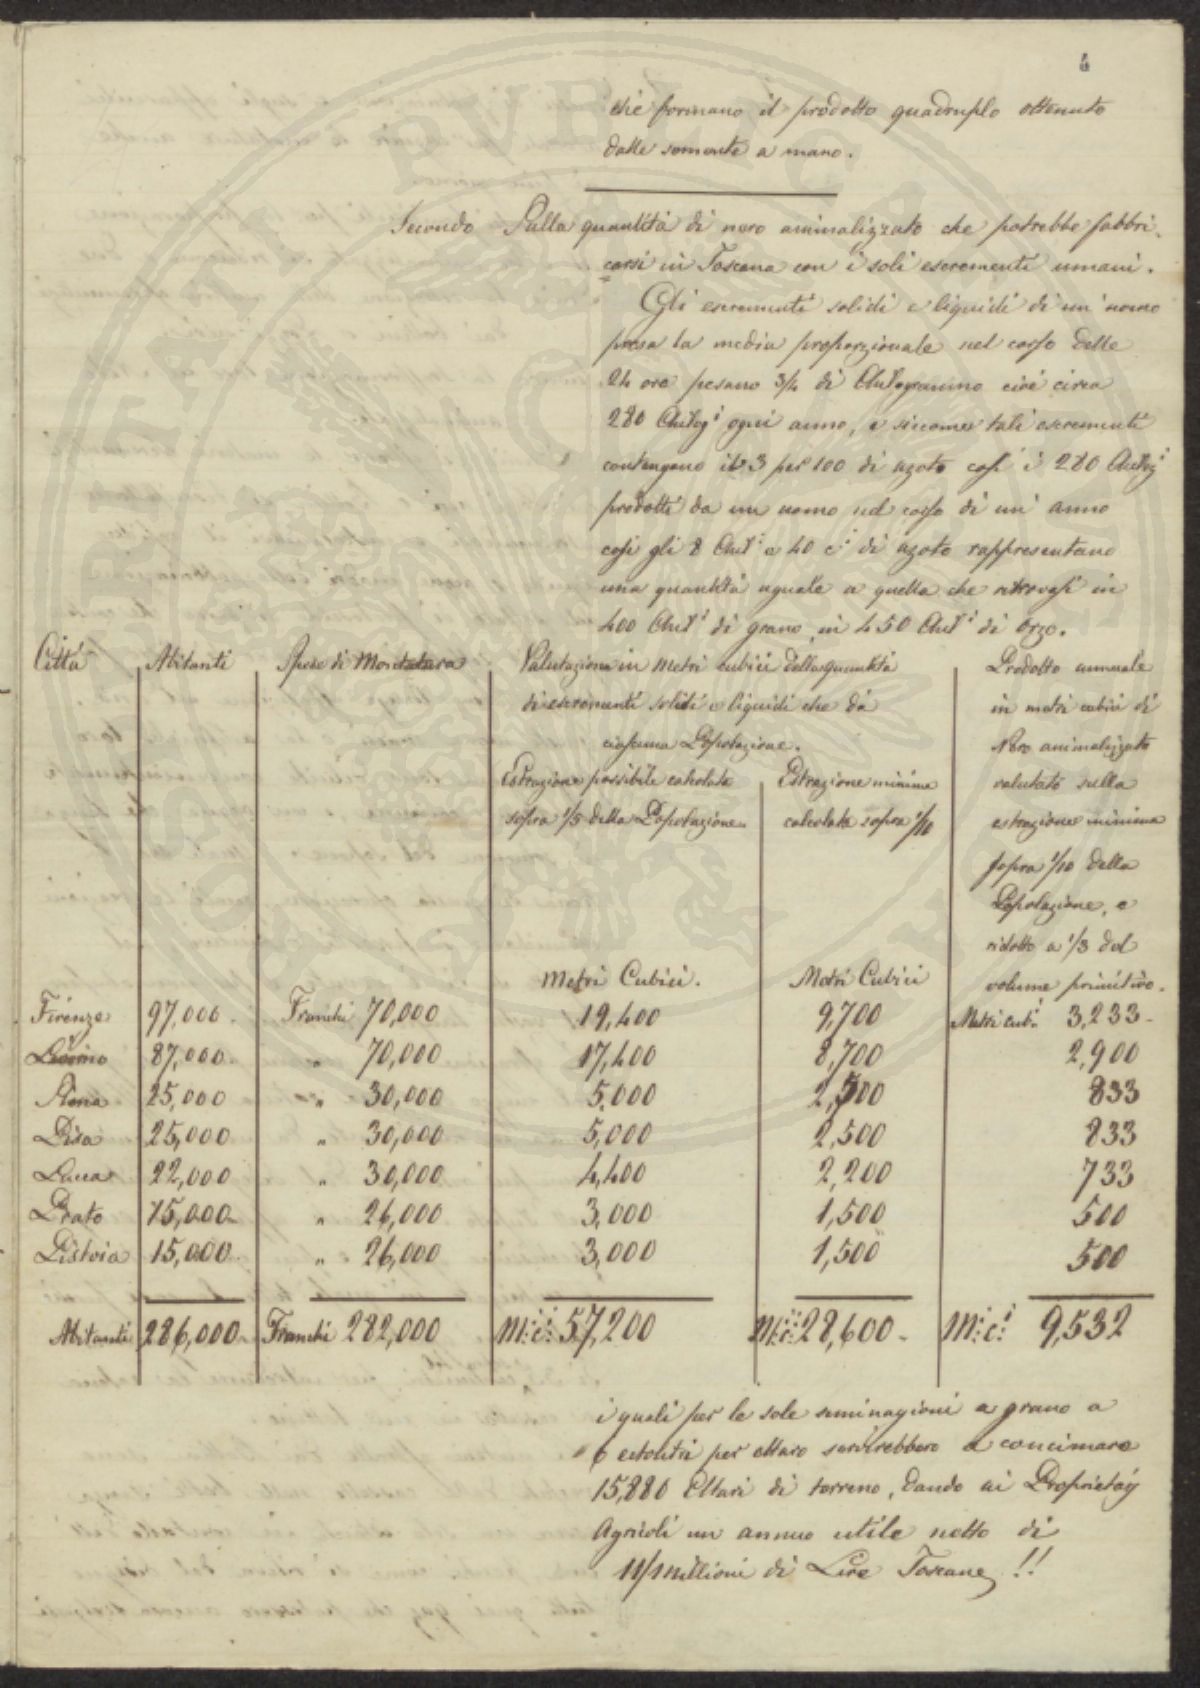 4
che formano il prodotto quadruplo ottenuto
dalle semente a mano.
Secondo Sulla quantità di nero animalizzato che potrebbe fabbri-
carsi in Toscana con i soli escrementi umani.
Gli escrementi solidi e liquidi di un'uomo
presa la media proporzionale nel corso delle
24 ore pesano 3/4 di Chilogrammo cioè circa
280 Chilogi ogni anno, e siccome tali escrementi
contengono il 3 per 100 di azoto così i 280 Chilogi
prodotti da un uomo nel corso di un'anno
così gli 8 Chili e 40 c.i di azoto rappresentano
una quantità uguale a quella che ritrovasi in
400 Chili di grano, in 450 Chili di Orzo.
Città Abitanti Spese di Montatura Valutazione in Metri cubici della quantità Prodotto annuale
di escrementi solidi e liquidi che dà in metri cubici di
ciascuna Popolazione. Nero animalizzato
Estrazione possibile calcolata Estrazione minima valutato sulla
sopra 1/5 della Popolazione. calcolata sopra 1/10 estrazione minima
sopra 1/10 della
Popolazione, e
ridotto a 1/3 del
Metri Cubici. Metri Cubici volume primitivo.
Firenze 97,000 Franchi 70,000 19,400 9,700 Metri cubi 3,233
Livorno 87,000 " 70,000 17,400 8,700 2,900
Siena 25,000 " 30,000 5,000 2,500 833
Pisa 25,000 " 30,000 5,000 2,500 833
Lucca 22,000 " 30,000 4,400 2,200 733
Prato 15,000 " 26,000 3,000 1,500 500
Pistoia 15,000 " 26,000 3,000 1,500 500
Abitanti 286,000 Franchi 282,000 M:i c:i 57,200 M:i c:i 28,600 M:i c:i 9,532
i quali per le sole seminagioni a grano a
6 ectolitri per ettaro servirebbero a concimare
15,880 Ettari di terreno, dando ai Proprietarj
Agricoli un annuo utile netto di
Millioni di Lire Toscane!!